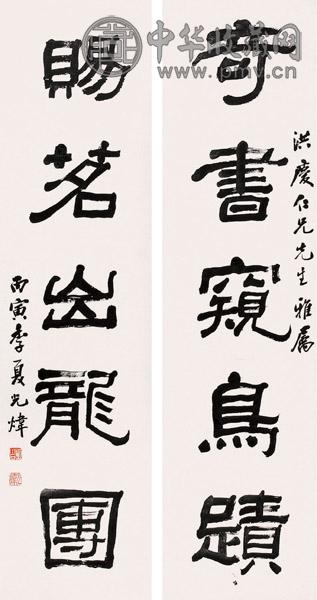 中华收藏网
www.pmv.cn
洪慶仁兄先生雅屬
奇書窺鳥蹟
賜茗出龍團
丙寅季夏光煒